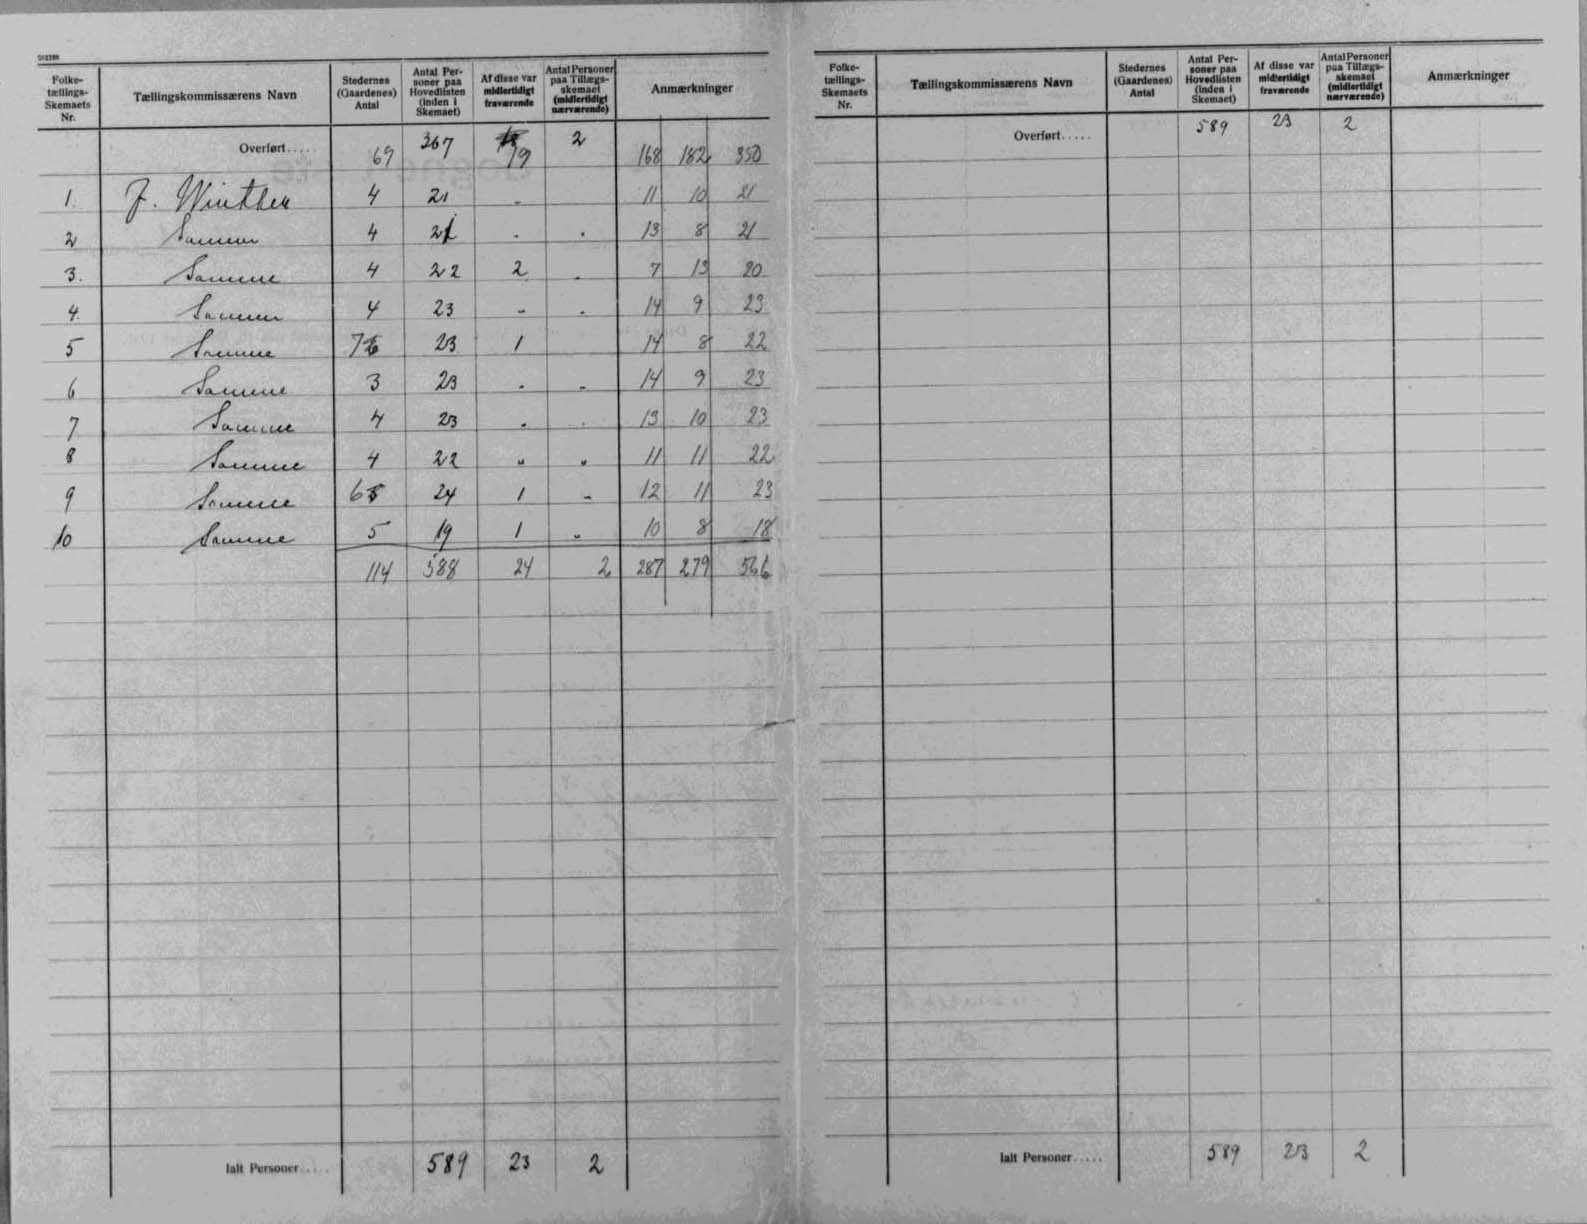 Folke-tællings-Skemaets Nr. Tællingskommissærens Navn Stedernes (Gaardenes) Antal Antal Personer paa Hovedlisten (inden i Skemaet) Af disse var midlertidigt fraværende Antal Personer paa Tillægs-skemaet (midlertidigt nærværende) Anmærkninger
Overført.... 69 367 19 2 168 182 350
1. J. Winther 4 21 - 11 10 21
2 Samme 4 21 . . 13 8 21
3. Samme 4 22 2 . 7 13 20
4. Samme 4 23 - . 14 9 23
5 Samme 7 23 1 14 8 22
6 Samme 3 23 . - 14 9 23
7 Samme 4 23 . . 13 10 23
8 Samme 4 22 " " 11 11 22
9 Samme 6 24 1 - 12 11 23
10 Samme 5 19 1 " 10 8 18
114 588 24 2 287 279 566
Ialt Personer..... 589 23 2
Folke-tællings-Skemaets Nr. Tællingskommissærens Navn Stedernes (Gaardenes) Antal Antal Personer paa Hovedlisten (inden i Skemaet) Af disse var midlertidigt fraværende Antal Personer paa Tillægs-skemaet (midlertidigt nærværende) Anmærkninger
Overført..... 589 23 2
Ialt Personer..... 589 23 2